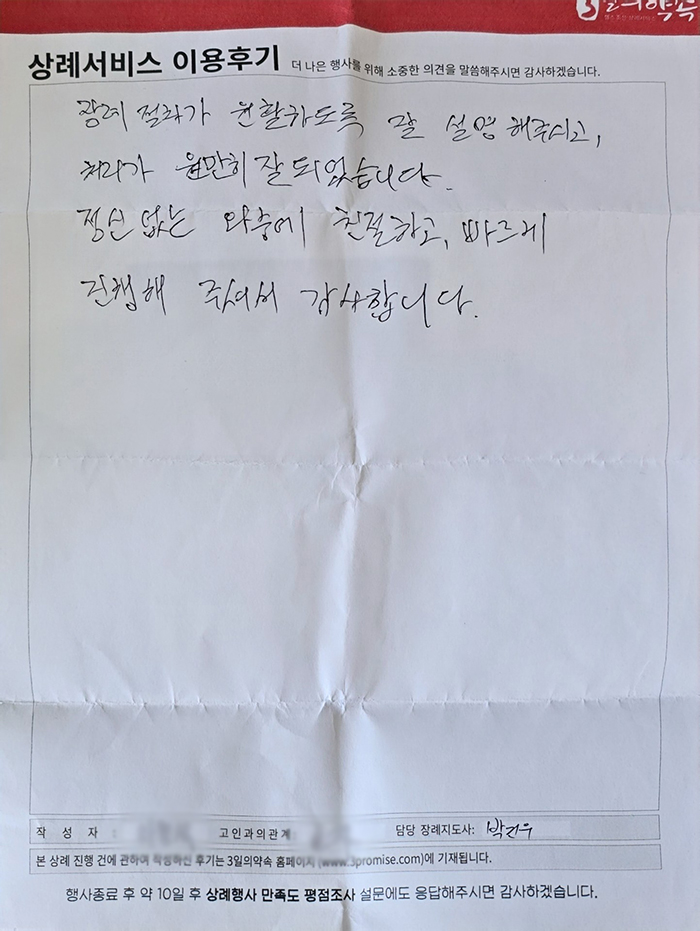 3일의약속
상례서비스 이용후기 더 나은 행사를 위해 소중한 의견을 말씀해주시면 감사하겠습니다.
장례 절차가 원활하도록 잘 설명해주시고,
처리가 원만히 잘 되었습니다.
정신 없는 와중에 친절하고, 빠르게
진행해 주셔서 감사합니다.
작 성 자 : 고인과의관계: 담당 장례지도사: 박건우
본 상례 진행 건에 관하여 작성하신 후기는 3일의약속 홈페이지 (www.3promise.com)에 기재됩니다.
행사종료 후 약 10일 후 상례행사 만족도 평점조사 설문에도 응답해주시면 감사하겠습니다.